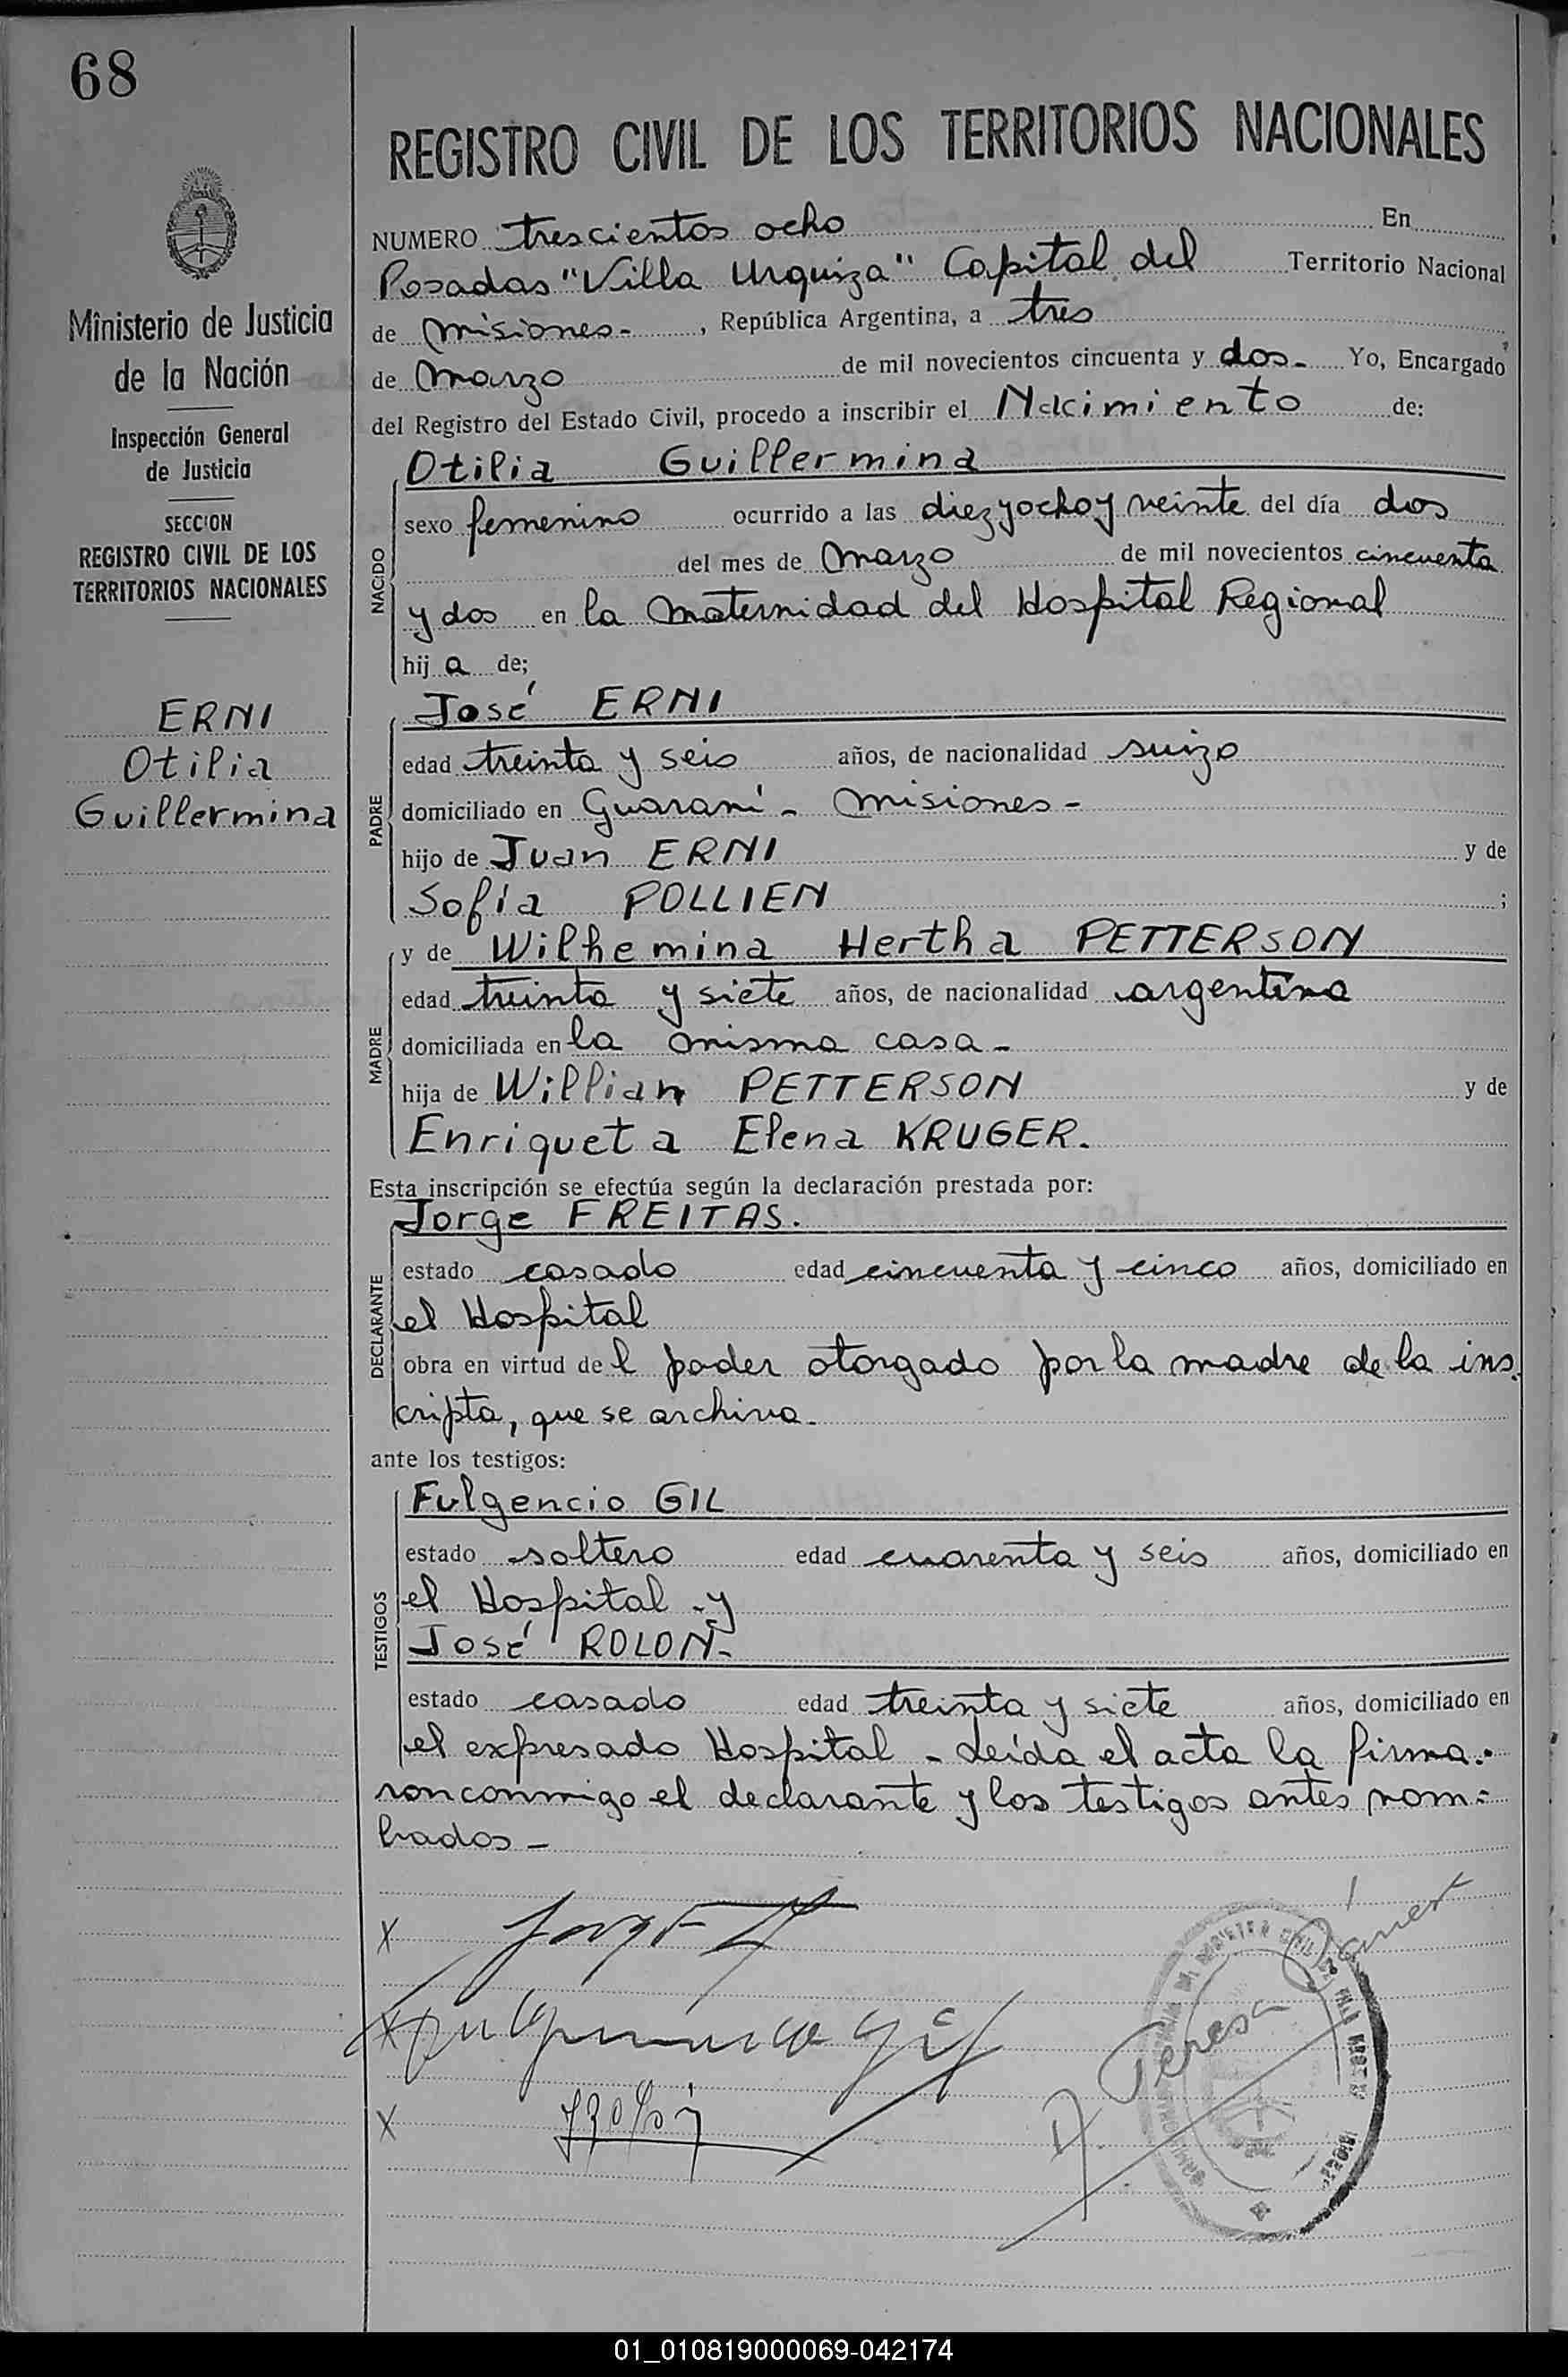 68
REGISTRO CIVIL DE LOS TERRITORIOS NACIONALES
Ministerio de Justicia
de la Nación
Inspección General
de Justicia
SECCION
REGISTRO CIVIL DE LOS
TERRITORIOS NACIONALES
ERNI
Otilia
Guillermina
NUMERO trescientos ocho En
Posadas "Villa Urquiza" Capital del Territorio Nacional
de Misiones-, República Argentina, a tres
de Marzo de mil novecientos cincuenta y dos- Yo, Encargado
del Registro del Estado Civil, procedo a inscribir el Nacimiento de:
NACIDO
Otilia Guillermina
sexo femenino ocurrido a las diez y ocho y veinte del día dos
del mes de Marzo de mil novecientos cincuenta
y dos en la Maternidad del Hospital Regional
hija de;
PADRE
José ERNI
edad treinta y seis años, de nacionalidad suizo
domiciliado en Guaraní - Misiones-
hijo de Juan ERNI y de
Sofía POLLIEN ;
MADRE
y de Wilhemina Hertha PETTERSON
edad treinta y siete años, de nacionalidad argentina
domiciliada en la misma casa-
hija de Willian PETTERSON y de
Enriqueta Elena KRUGER.
Esta inscripción se efectúa según la declaración prestada por:
DECLARANTE
Jorge FREITAS.
estado casado edad cincuenta y cinco años, domiciliado en
el Hospital
obra en virtud del poder otorgado por la madre de la ins
cripta, que se archiva-
ante los testigos:
TESTIGOS
Fulgencio GIL
estado soltero edad cuarenta y seis años, domiciliado en
el Hospital -y
José ROLON-
estado casado edad treinta y siete años, domiciliado en
el expresado Hospital - Leída el acta la firma-
ron conmigo el declarante y los testigos antes nom-
brados-
X Jorge
X Fulgencio Gil
X JRolón
Teresa
01_010819000069-042174